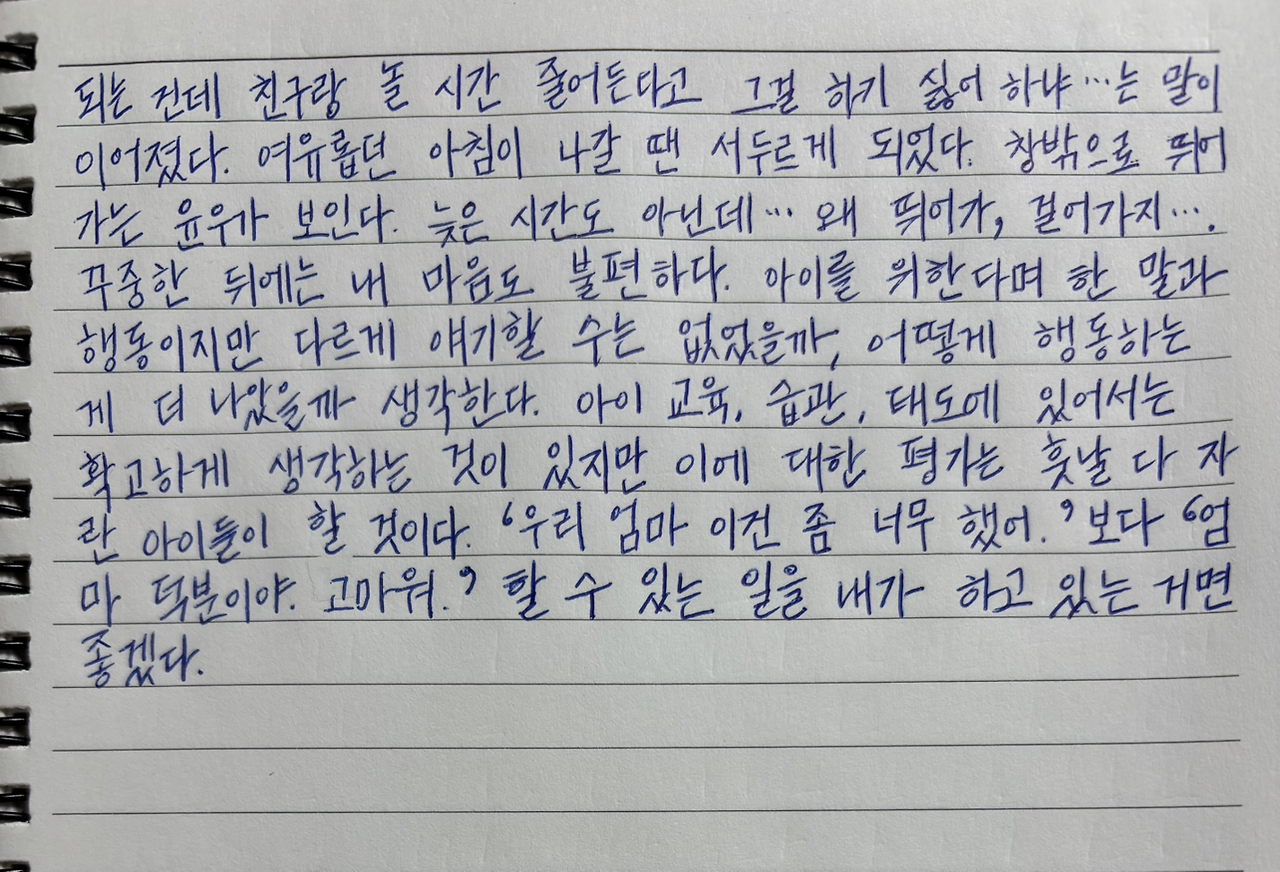 되는 건데 친구랑 놀 시간 줄어든다고 그걸 하기 싫어 하냐…는 말이
이어졌다. 여유롭던 아침이 나갈 땐 서두르게 되었다. 창밖으로 뛰어
가는 윤우가 보인다. 늦은 시간도 아닌데… 왜 뛰어가, 걸어가지….
꾸중한 뒤에는 내 마음도 불편하다. 아이를 위한다며 한 말과
행동이지만 다르게 얘기할 수는 없었을까, 어떻게 행동하는
게 더 나았을까 생각한다. 아이 교육, 습관, 태도에 있어서는
확고하게 생각하는 것이 있지만 이에 대한 평가는 훗날 다 자
란 아이들이 할 것이다. ‘우리 엄마 이건 좀 너무 했어.’ 보다 ‘엄
마 덕분이야. 고마워.’ 할 수 있는 일을 내가 하고 있는 거면
좋겠다.